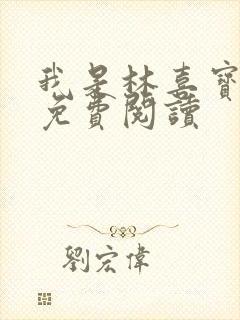 我是林喜寶
免費閱讀
劉宏偉